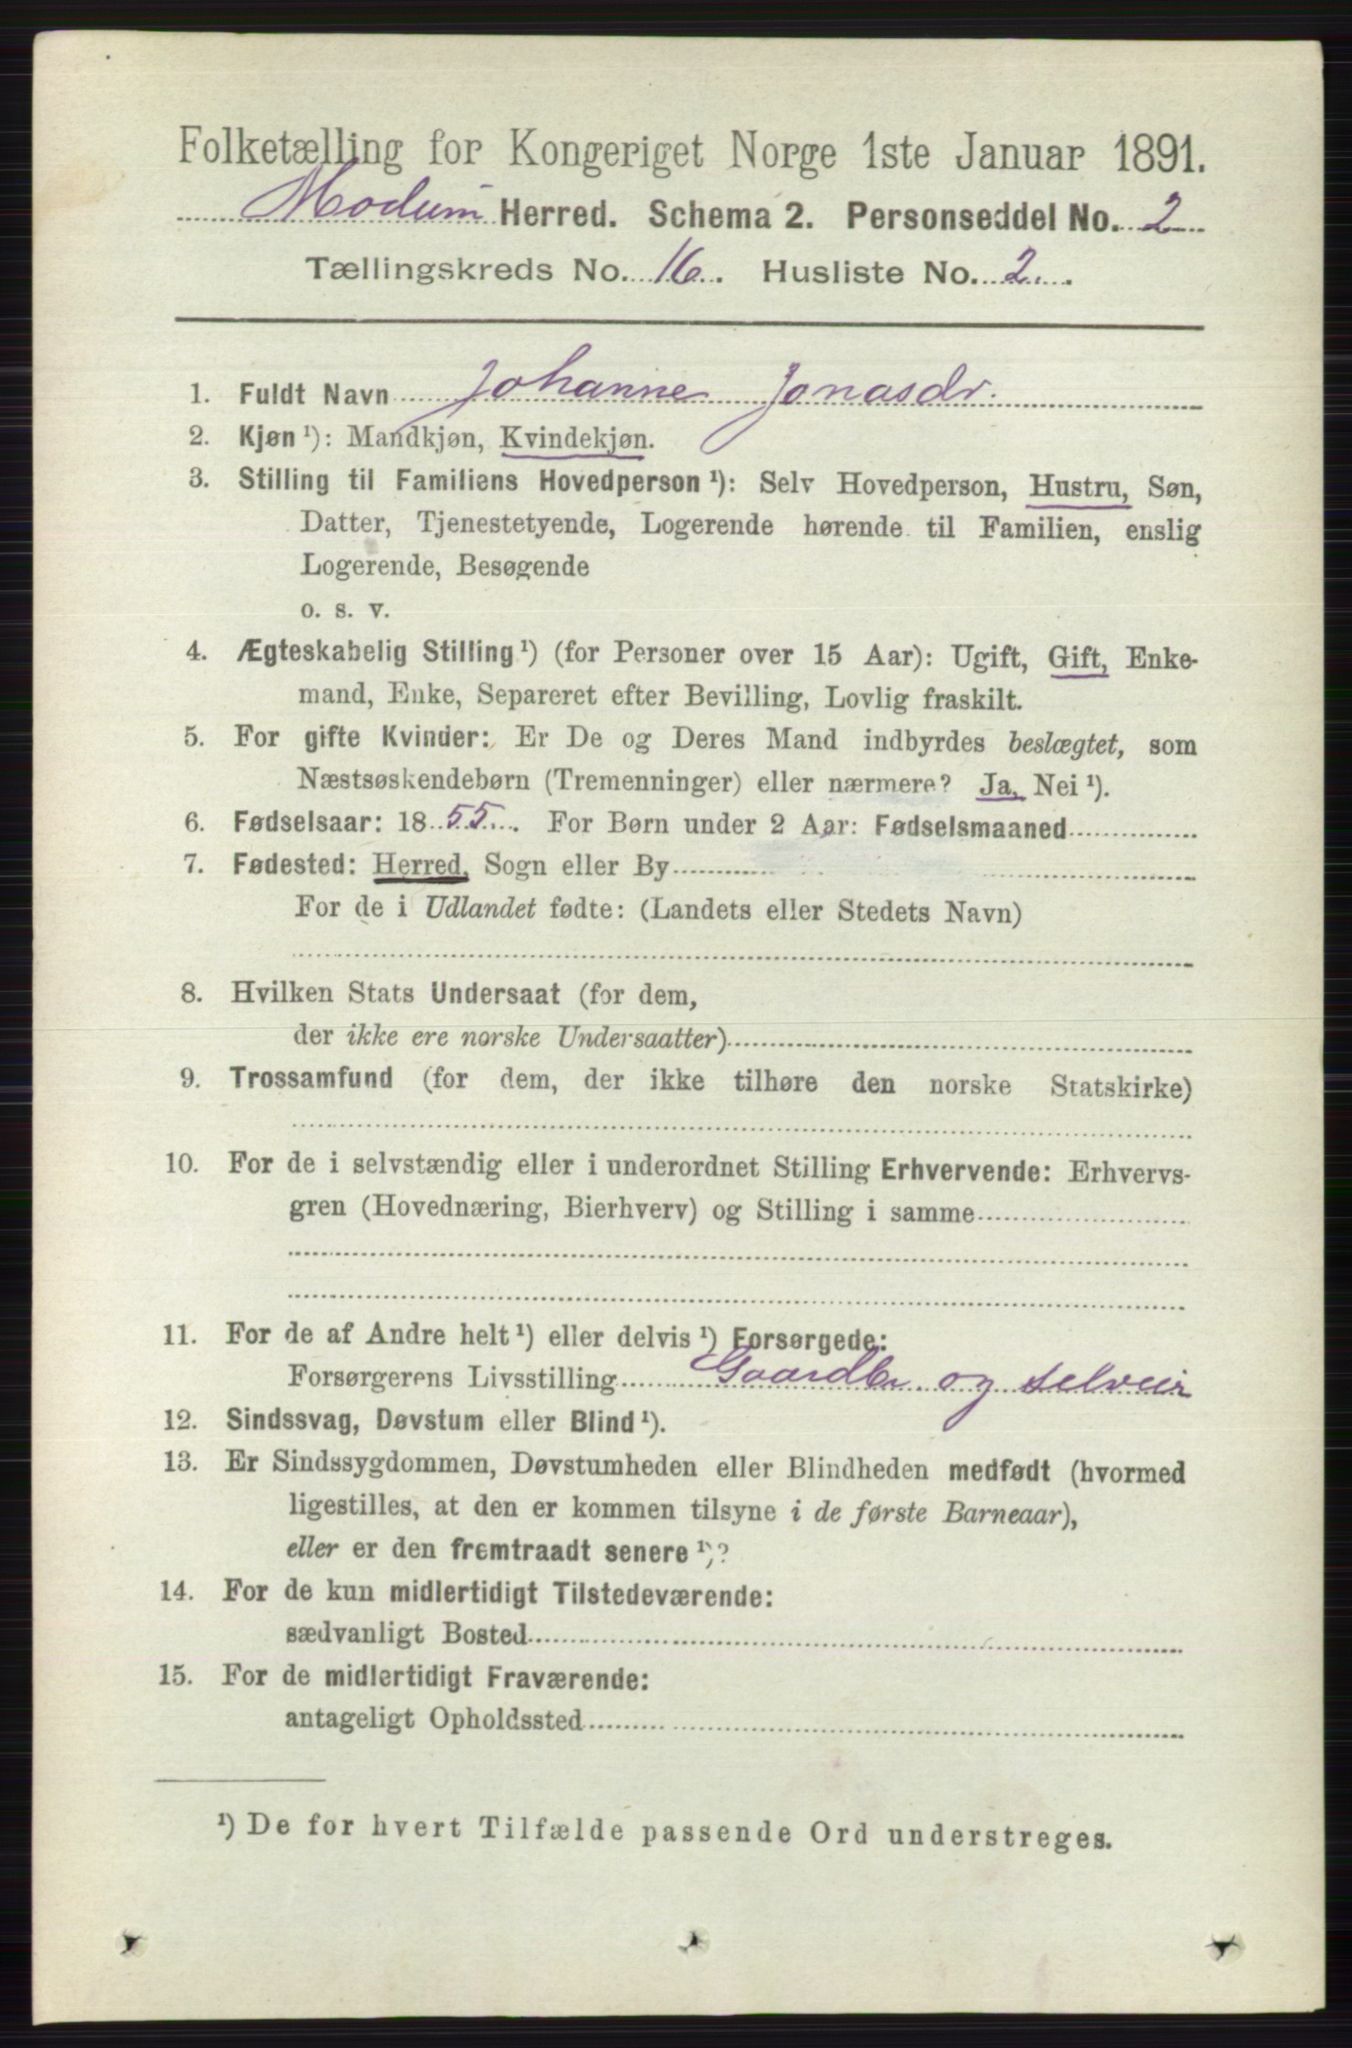 Folketælling for Kongeriget Norge 1ste Januar 1891.
Modum Herred. Schema 2. Personseddel No. 2
Tællingskreds No. 16. Husliste No. 2.
1. Fuldt Navn Johanne Jonasdr.
2. Kjøn ¹): Mandkjøn, Kvindekjøn.
3. Stilling til Familiens Hovedperson ¹): Selv Hovedperson, Hustru, Søn,
Datter, Tjenestetyende, Logerende hørende til Familien, enslig
Logerende, Besøgende
o. s. v.
4. Ægteskabelig Stilling ¹) (for Personer over 15 Aar): Ugift, Gift, Enke-
mand, Enke, Separeret efter Bevilling, Lovlig fraskilt.
5. For gifte Kvinder: Er De og Deres Mand indbyrdes beslægtet, som
Næstsøskendebørn (Tremenninger) eller nærmere? Ja, Nei ¹).
6. Fødselsaar: 1855. For Børn under 2 Aar: Fødselsmaaned
7. Fødested: Herred, Sogn eller By
For de i Udlandet fødte: (Landets eller Stedets Navn)
8. Hvilken Stats Undersaat (for dem,
der ikke ere norske Undersaatter)
9. Trossamfund (for dem, der ikke tilhøre den norske Statskirke)
10. For de i selvstændig eller i underordnet Stilling Erhvervende: Erhvervs-
gren (Hovednæring, Bierhverv) og Stilling i samme
11. For de af Andre helt ¹) eller delvis ¹) Forsørgede:
Forsørgerens Livsstilling Gaardbr. og selveier
12. Sindssvag, Døvstum eller Blind ¹).
13. Er Sindssygdommen, Døvstumheden eller Blindheden medfødt (hvormed
ligestilles, at den er kommen tilsyne i de første Barneaar),
eller er den fremtraadt senere ¹)?
14. For de kun midlertidigt Tilstedeværende:
sædvanligt Bosted
15. For de midlertidigt Fraværende:
antageligt Opholdssted
¹) De for hvert Tilfælde passende Ord understreges.